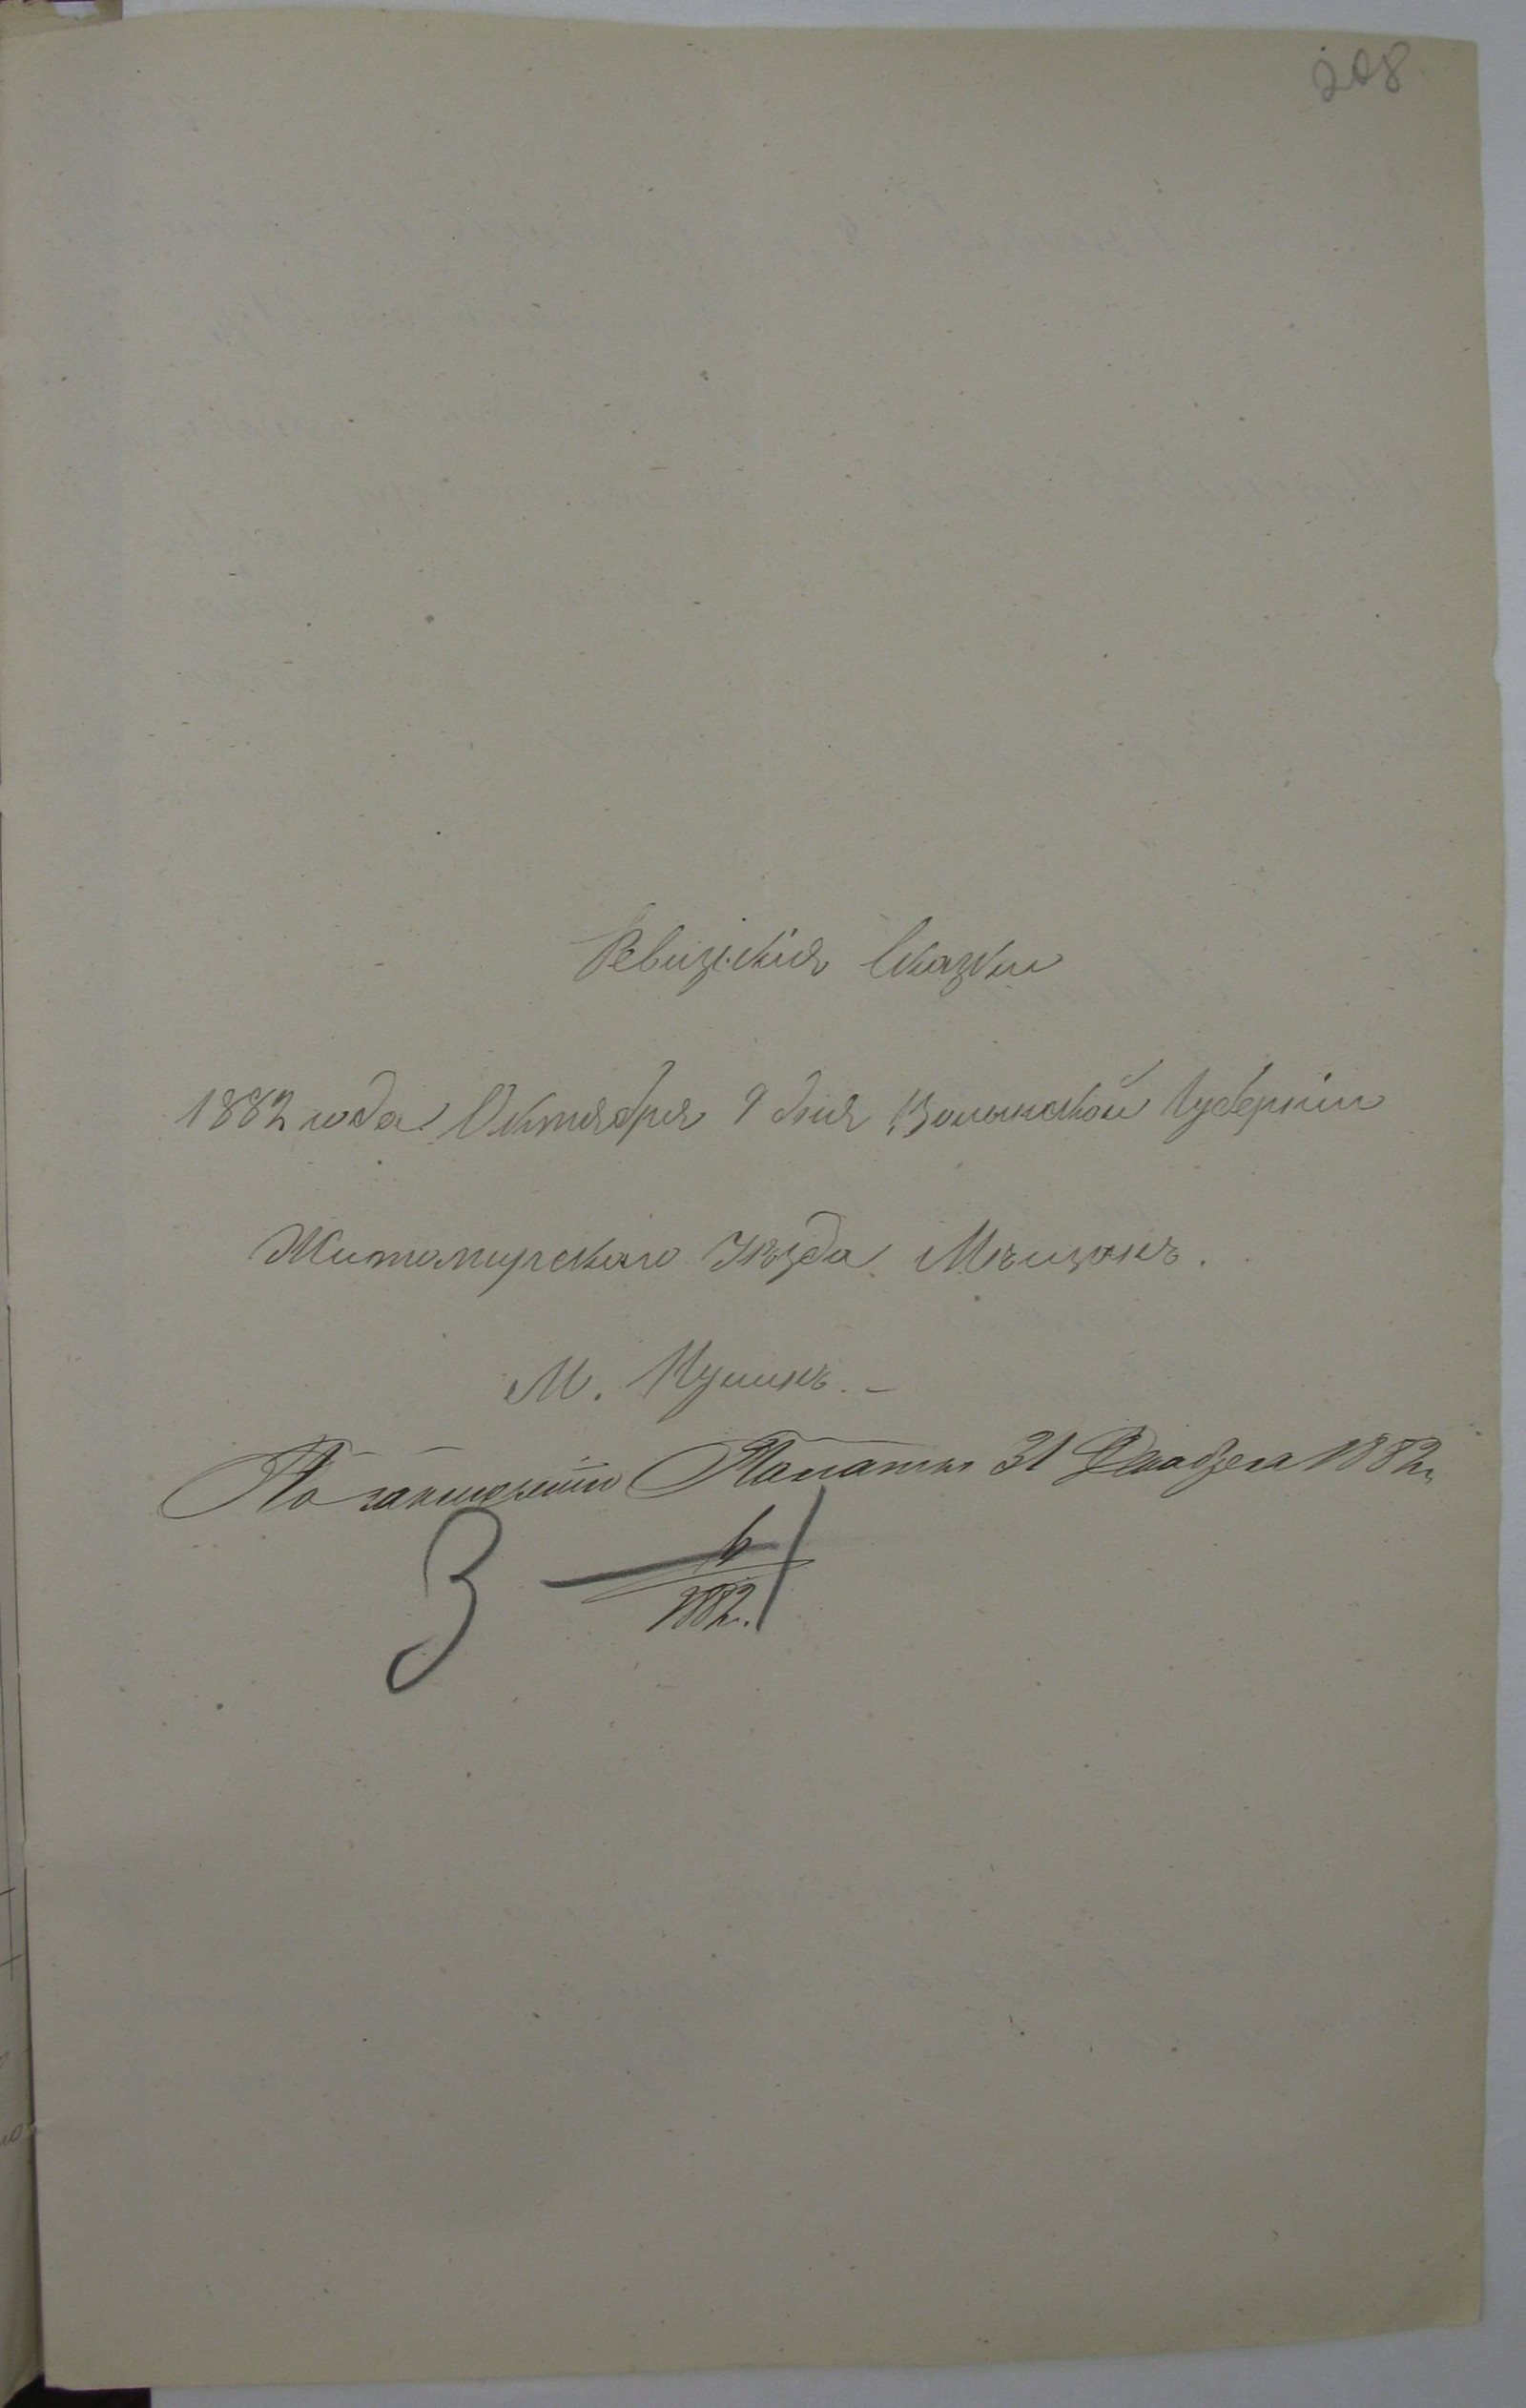 208
Ревизскія Сказки
1882 года Октября 9 дня Волынской Губерніи
Житомирскаго Уѣзда Мѣщанъ.
М. Кушнъ. -
По заключенію Палаты 31 Декабря 1882 г.
3 — 6
1882 г.